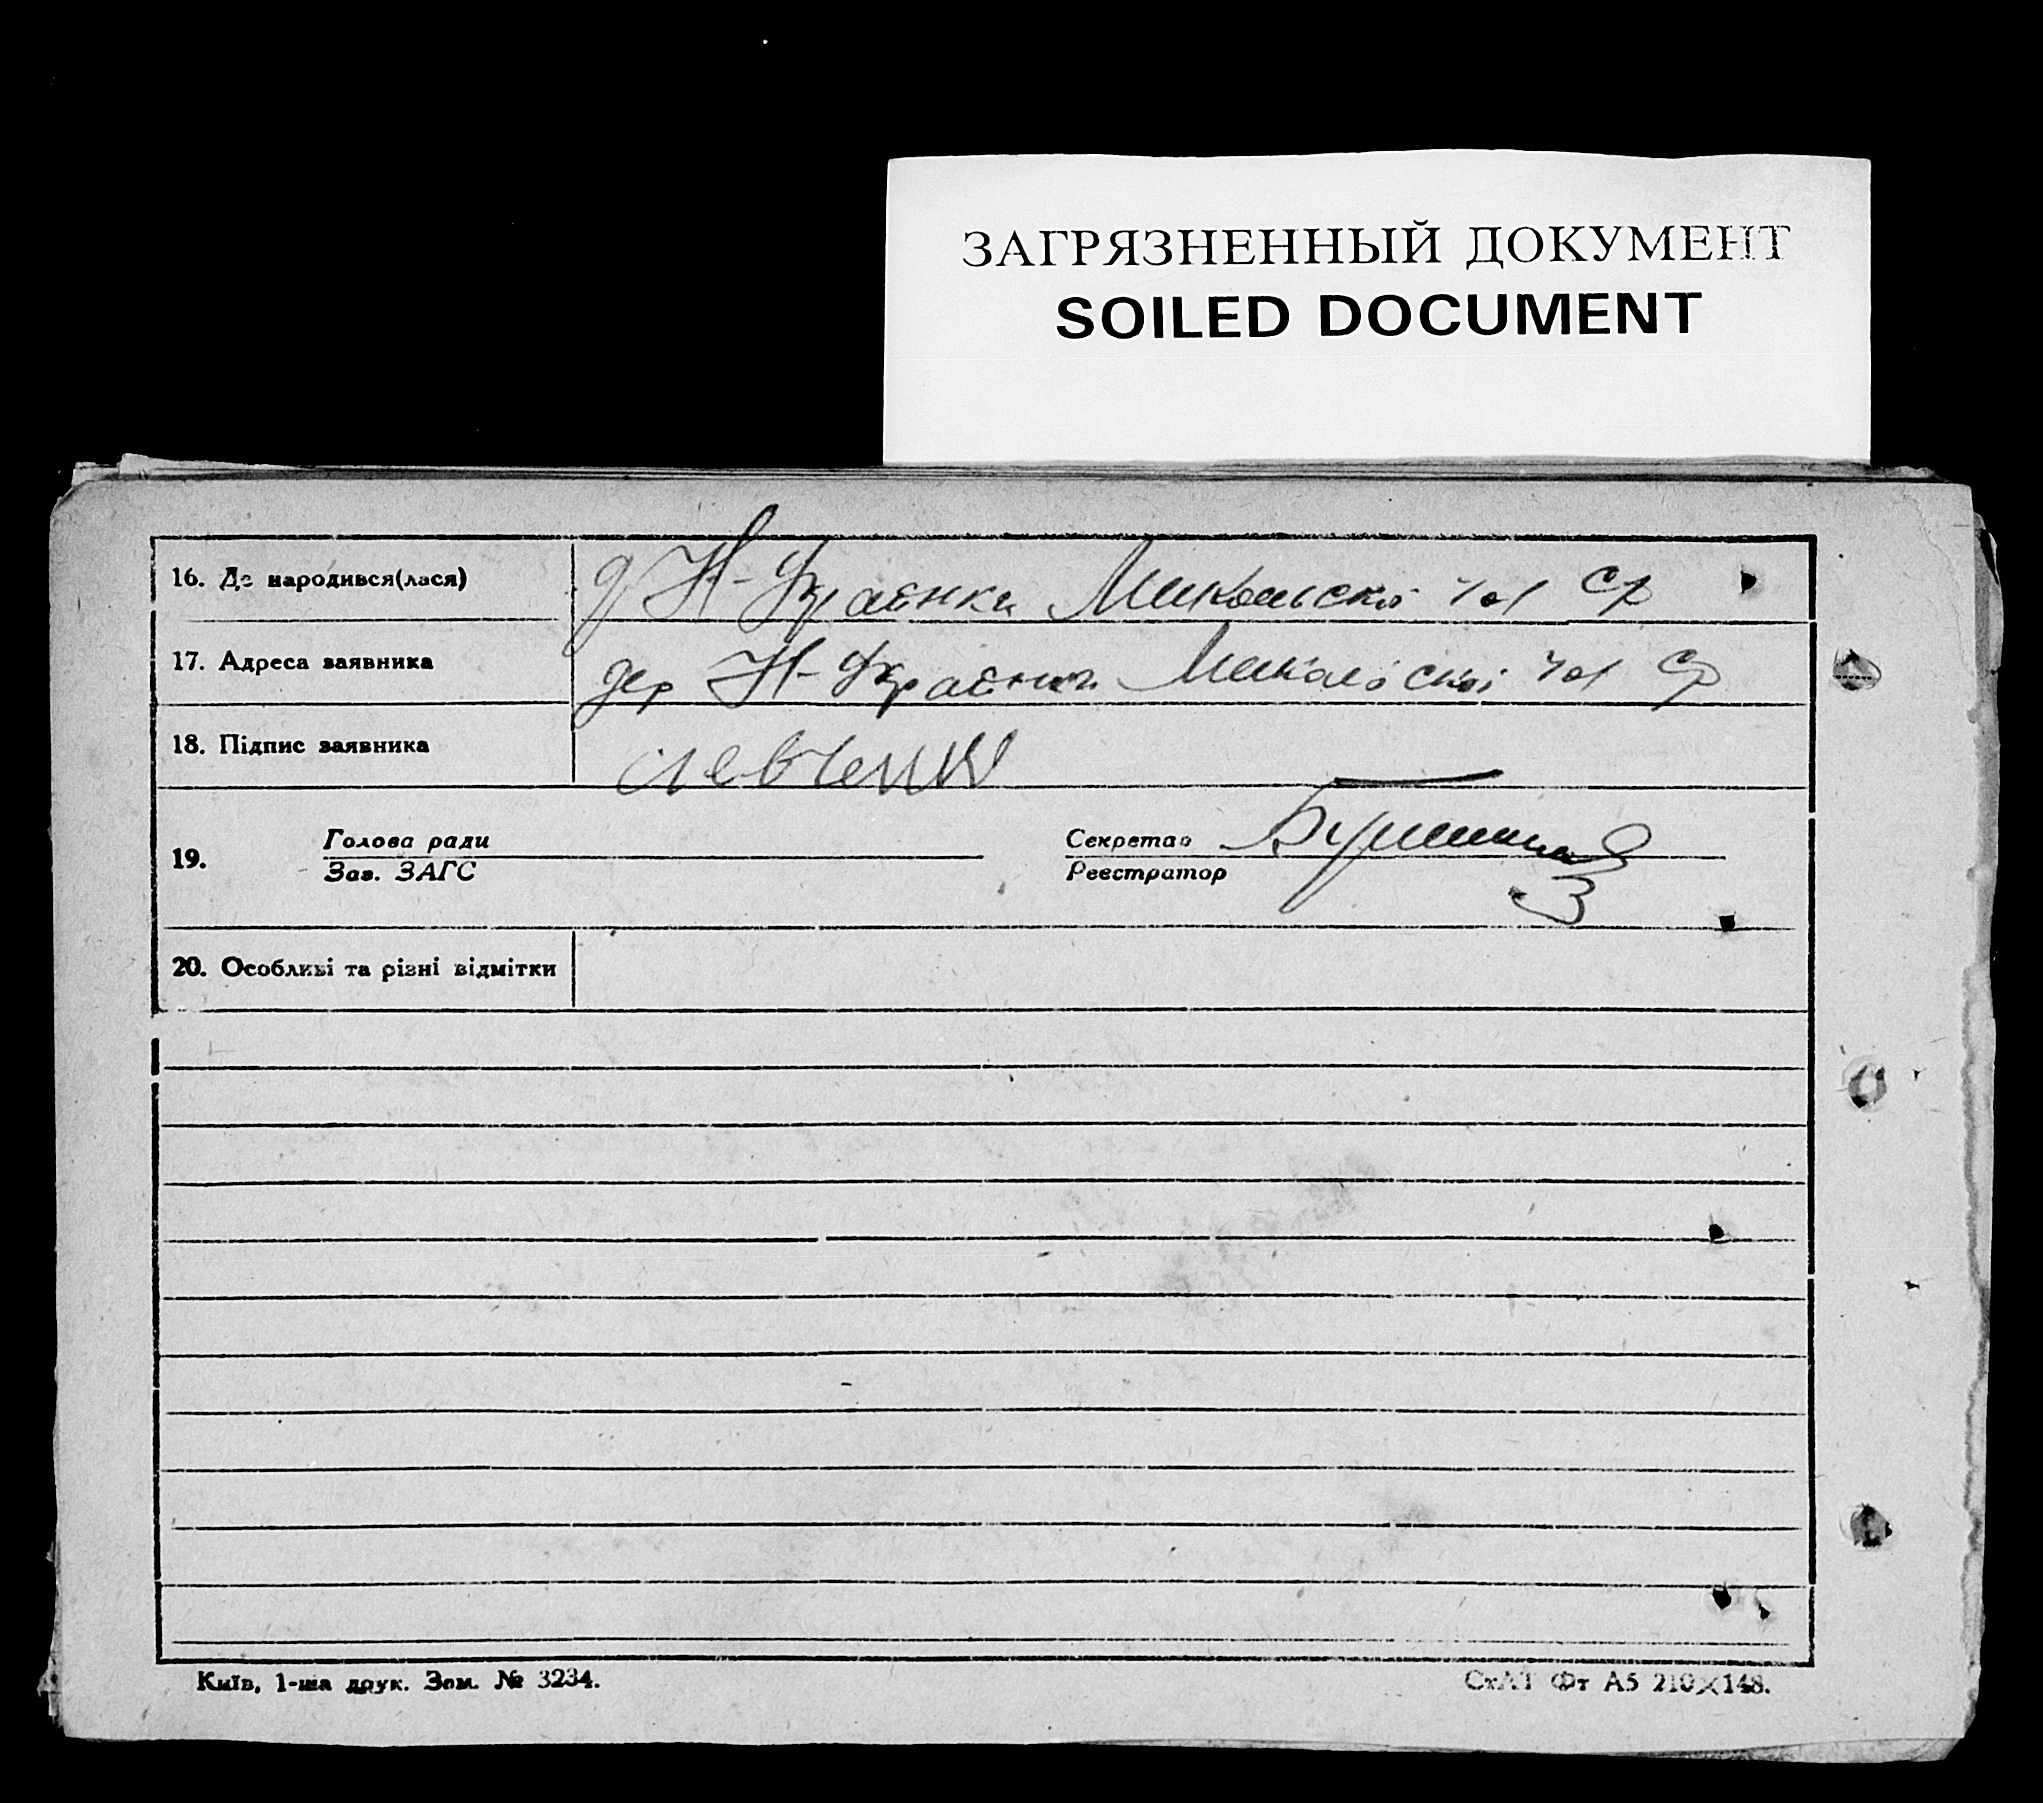 ЗАГРЯЗНЕННЫЙ ДОКУМЕНТ
SOILED DOCUMENT
16. Де народився(лася) д Н-Украєнки Микольскоі с/р
17. Адреса заявника дер Н-Украєнки Микольскоі с/р
18. Підпис заявника Левченко
19. Голова ради Секретар
Зав. ЗАГС Реєстратор
20. Особливі та різні відмітки
Київ, 1-ша друк. Зам. № 3234. СтАТ Фт А5 210×148.